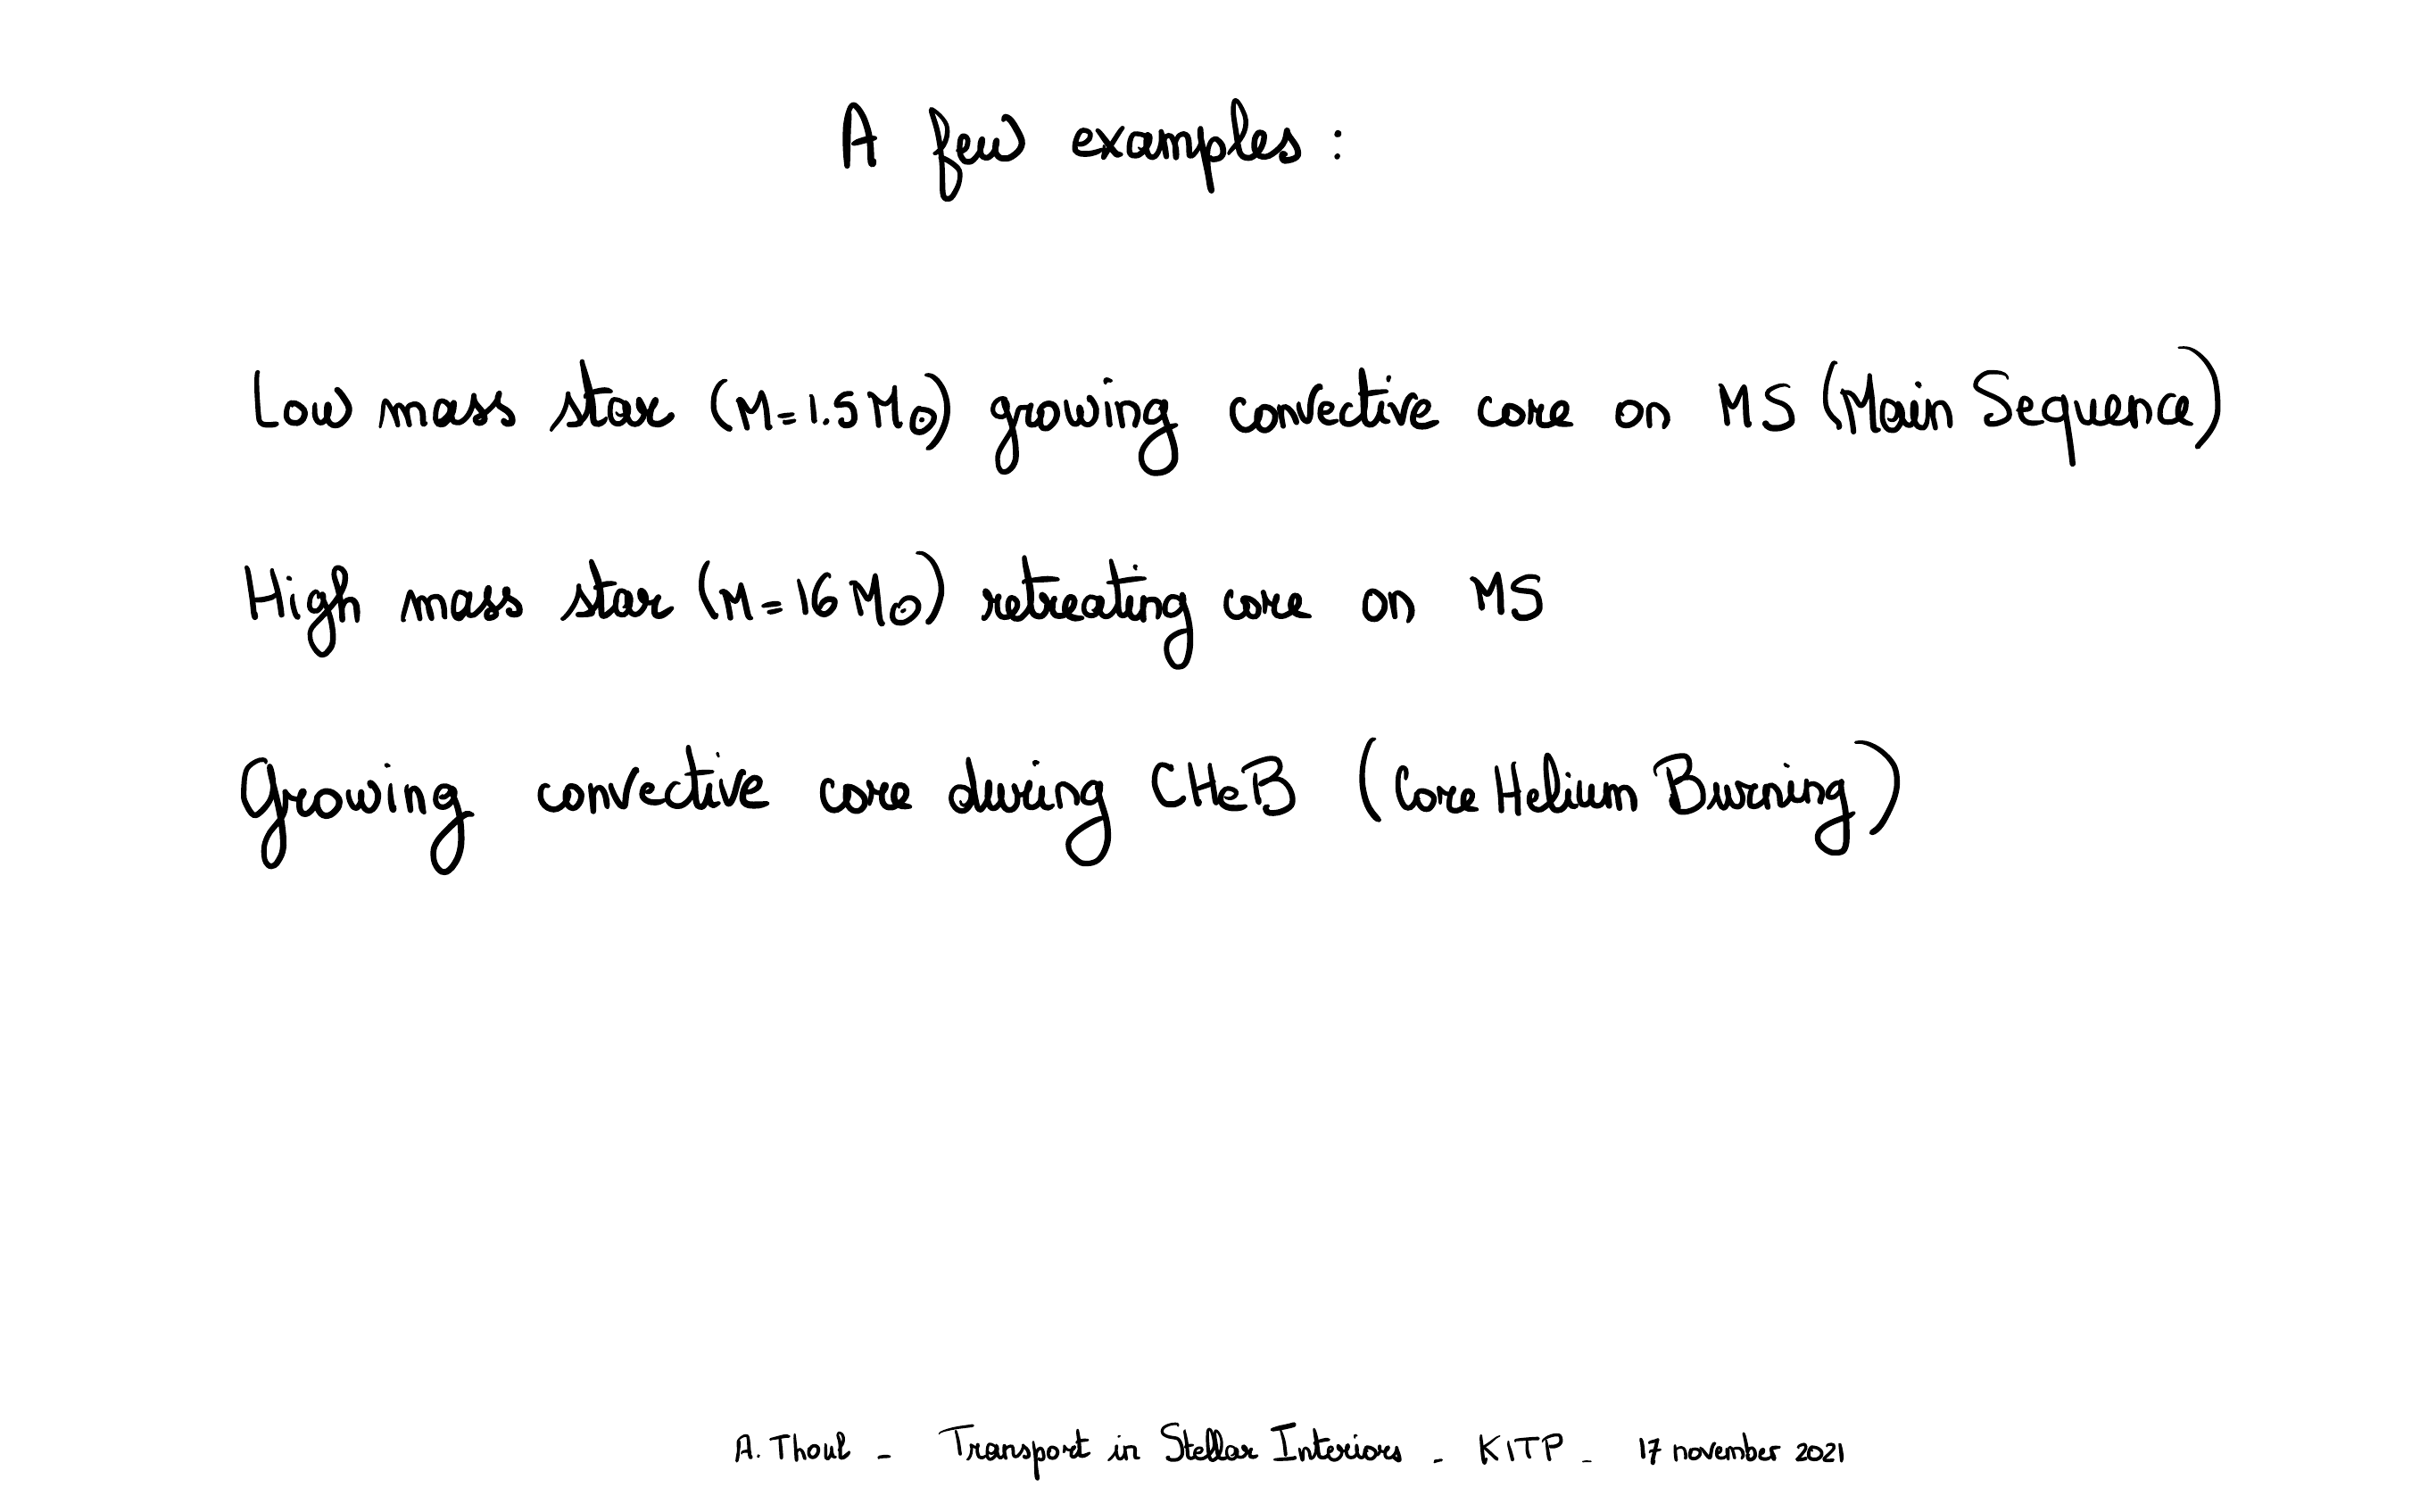 A few examples :
Low mass star (M=1.5 M⊙) growing convective core on MS (Main Sequence)
High mass star (M=16 M⊙) retreating core on MS
Growing convective core during CHeB (Core Helium Burning)
A. Thoul - Transport in Stellar Interiors - KITP - 17 november 2021